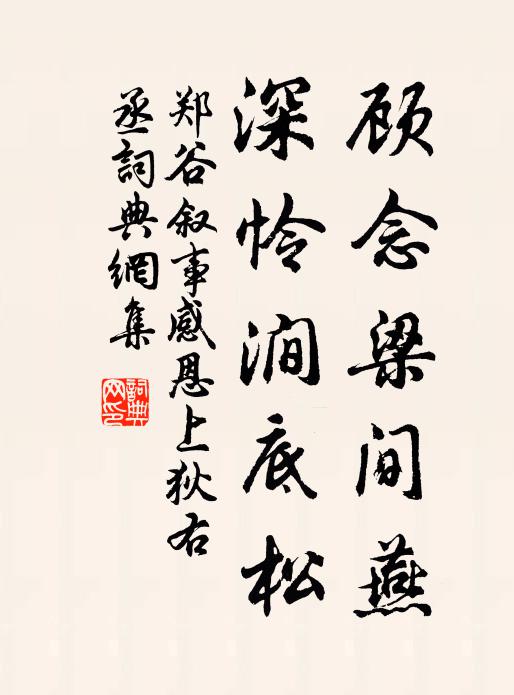 顾念梁间燕
深怜涧底松
郑谷叙事感恩上狄右
丞詞典網集
詞典网印